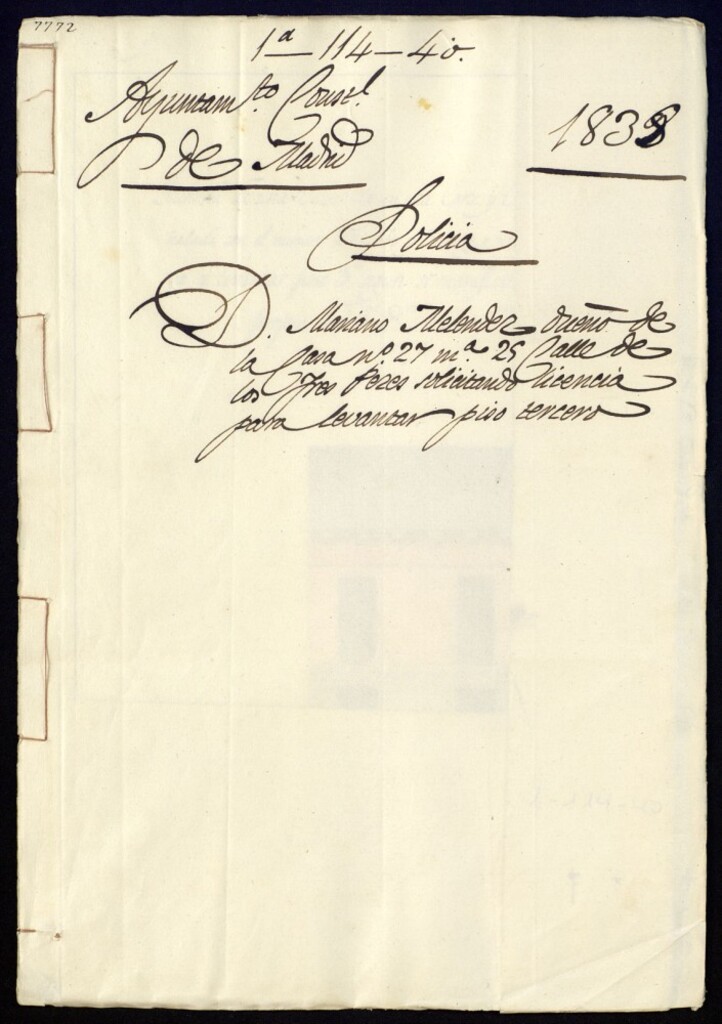 7772
1ª—114—40.
Ayuntamto. Constl.
de Madrid
1838
Policia
D. Mariano Melendez dueño de
la Casa nº. 27 mª. 25 Calle de
los Tres Pezes solicitando licencia
para levantar piso tercero